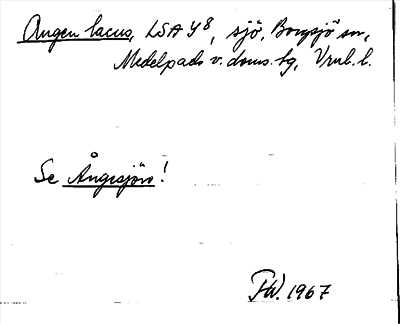 Angen lacus, LSA Y8, sjö, Borgsjö sn,
Medelpads v. doms. tg, Vnl. l.
Se Ångesjön!
FW. 1967